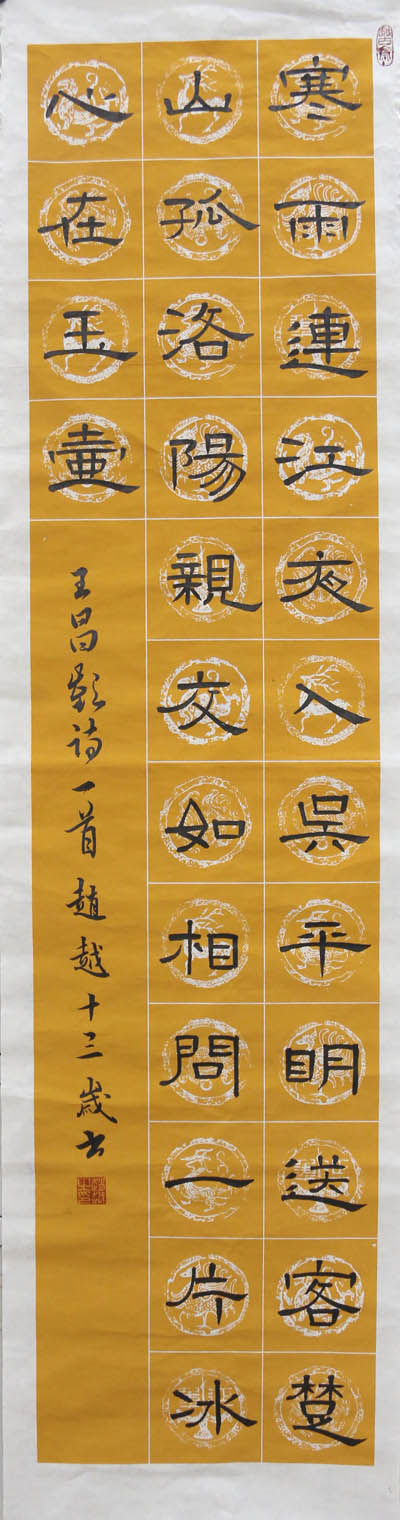 寒雨連江夜入吳平明送客楚
山孤洛陽親交如相問一片冰
心在玉壺
王昌齡诗一首趙越十三歲书